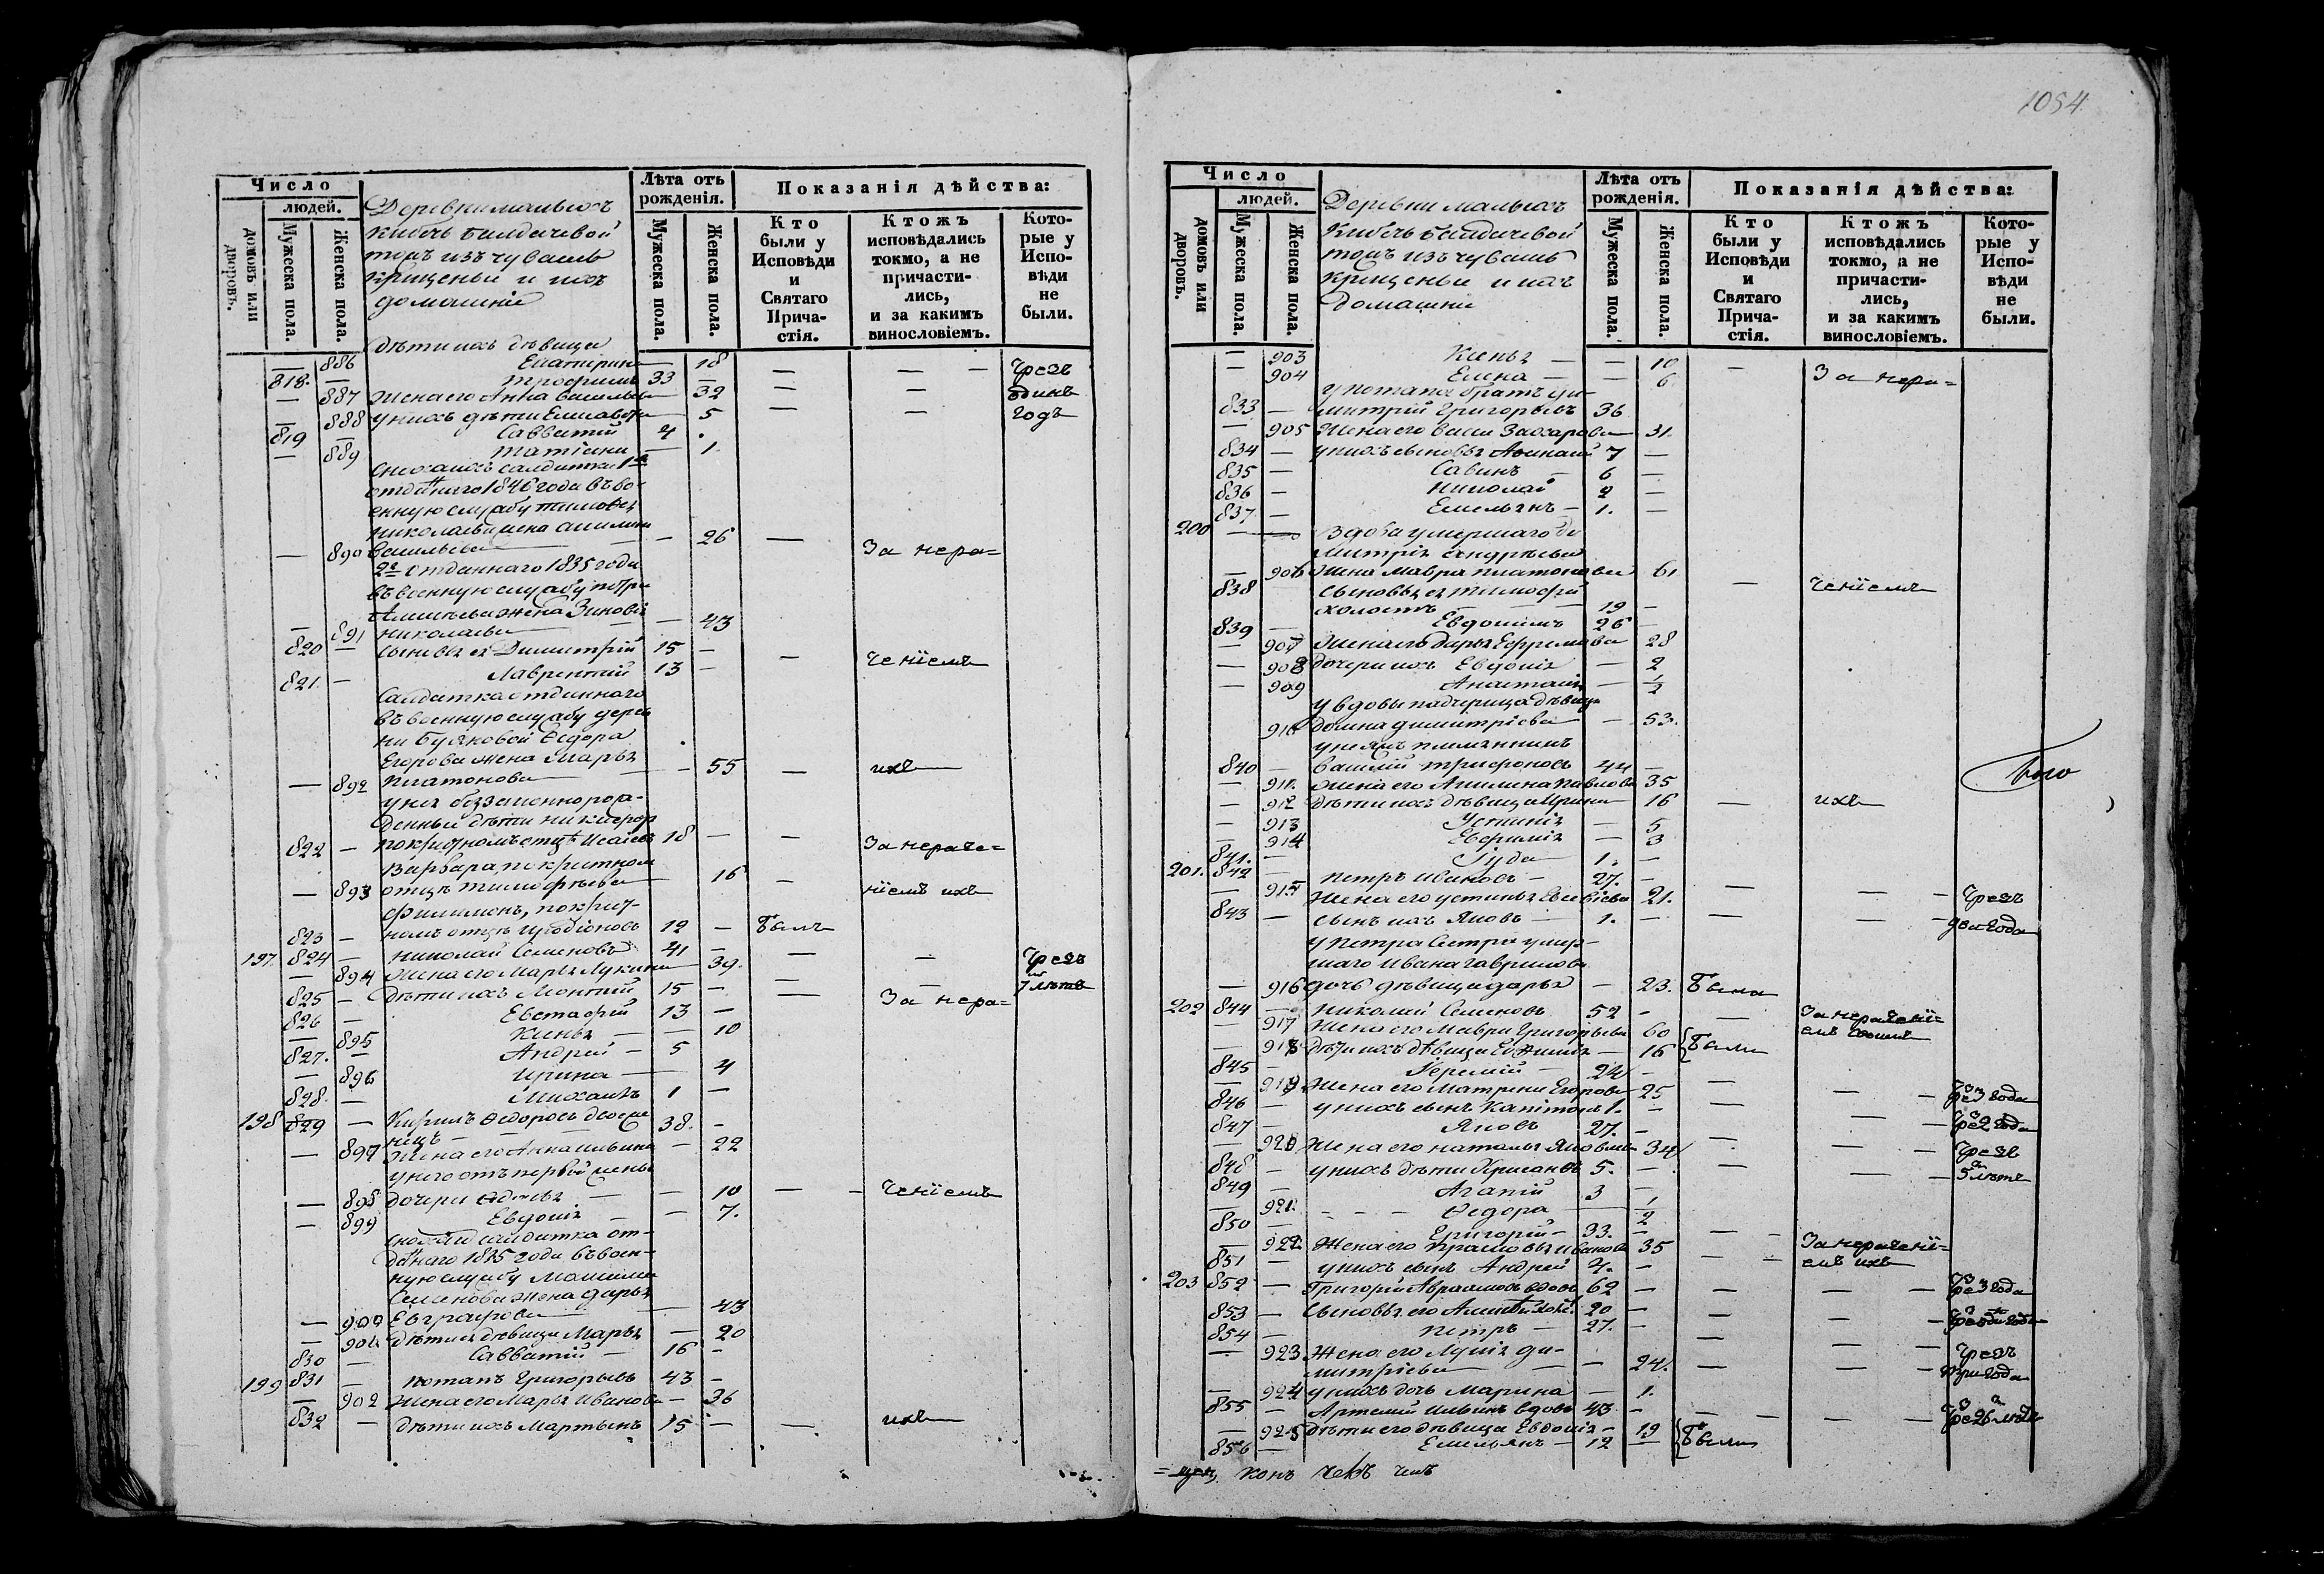 Число
людей.
домовъ или дворовъ.
Мужеска пола.
Женска пола.
Деревни малыхъ
тожъ изъ чувашъ
крещеныи и ихъ
домашніе
Лѣта отъ рожденія.
Мужеска пола.
Женска пола.
Показанія дѣйства:
Кто были у Исповѣди и Святаго Прича-стія.
Ктожъ исповѣдались токмо, а не причасти-лись, и за какимъ винословіемъ.
Кото-рые у Испо-вѣди не были.
дѣти ихъ дѣвица
— 886 Екатерина — 18 — — — Чрезъ
818. — Трофимъ 33 — одинъ
— 887 Жена его Анна Васильева — 32 — — годъ
— 888 у нихъ дѣти Елисавета — 5
819 — Савватій 4
— 889 Татіана — 1.
отданнаго 1846 года въ во-
енную службу
Николаева жена
— 890 Васильева — 26 — За нера=
2е отданнаго 1835 года
въ военную службу Петра
жена Зиновія
— 891 Николаева — 43
820 — сыновья ея Димитрій 15 — — ченіемъ
821. — Лаврентій 13 —
Салдатка отданнаго
въ военную службу дерев
ни Буяновой Ѳедора
Егорова жена Марья
— 892 Платонова — 55 — ихъ
у нея беззаконнорож-
денныи дѣти Никифоръ
822 — по крестномъ отцѣ Исаевъ 18 — — За нераче=
Варвара, по крестном
— 893 отцѣ Тимофѣева 16 — ніемъ ихъ
Филимонъ, по крест-
823 — номъ отцѣ Иродіоновъ 12 — Былъ
197. 824 — Николай Семеновъ 41 — — — Чрезъ
— 894 Жена его Марья Лукина 39. — — 7 лѣтъ
825 — Дѣти ихъ 15 — — За нера=
826 — Евстафій 13 —
— 895 Ксенья — — 10
827. — Андрей — 5
— 896 Ирина — 4
828. — Михаилъ 1 —
198 829 — Кирилъ Ѳедоровъ 38. —
нецъ —
— 897 Жена его Анна Ильина — 22
у него отъ первой жены
— 898 дочери — — 10 — — ченіемъ
— 899 Евдокія — — 7.
салдатка от-
даннаго 1835 года въ воен-
ную службу Максима
Семенова жена Дарья
— 900 Евграфова — 43
— 901 дѣти ея дѣвица Марья — 20
830 — Савватій — 16 —
199 831 — Потапъ Григорьевъ 43 —
— 902 Жена его Марья Иванова — 36
832 — дѣти ихъ Мартынъ 15 — — ихъ
1054.
Число
людей.
домовъ или дворовъ.
Мужеска пола.
Женска пола.
Деревни малыхъ
тожъ изъ чувашъ
крещеныи и ихъ
домашніи
Лѣта отъ рожденія.
Мужеска пола.
Женска пола.
Показанія дѣйства:
Кто были у Исповѣди и Святаго Прича-стія.
Ктожъ исповѣдались токмо, а не причасти-лись, и за какимъ винословіемъ.
Кото-рые у Испо-вѣди не были.
— 903 Ксенья — — 10 —
— 904 Елена — — 6 За нера=
у Потапа братъ Ди-
833 — митрій Григорьевъ 36
— 905 Жена его Васса Захарова 31.
834 — у нихъ сыновья Аѳанасій 7 —
835 — Савинъ — 6 —
836 — Николай 2 —
837 — Емельянъ — 1. —
200 — — Вдова умершаго Ди
митрія Андрѣева
— 906 жена Мавра Платонова 61
838 сыновья ея Тимофей — ченіемъ
холостъ — — 19 —
839 — Евдокимъ 26 —
— 907 Жена его Дарья Ефремова 28
— 908 дочери ихъ Евдокія — 2
— 909 Анастасія — 1/2
у вдовы падчерица дѣвица
910 Домна Димитріева — 53.
у нея племянникъ
840 — Василій Трифоновъ 44 —
— 911. Жена его Акилина Павлова 35
— 912 дѣти ихъ дѣвица Ирина — 16 — ихъ
— 913 Устинія — 5
— 914 Евфимія — 3
841. — Іуда — 1. —
201. 842 — Петръ Ивановъ — 27. —
— 915 Жена его Устинья Евсевіева 21. — — — Чрезъ
843 — сынъ ихъ Яковъ — 1. — — — — два года
у Петра сестра умер-
шаго Ивана Гаврилова
— 916 дочь дѣвица Дарья — 23. Была
202 844 — Николай Семеновъ 52 — — За нерачені=
— 917 Жена его Мавра Григорьева 60 емъ своимъ
— 918 дѣти ихъ дѣвица Евфимія — 16 Были
845 — Іеремій — 24 —
— 919 Жена его Матрена Егорова 25 — — — Чрез 3 года
846 — у нихъ сынъ Капитонъ 1. —
847 — Яковъ 27. — — — Чрез 2 года
— 920 Жена его Наталья Яковлева 34 — — Чрезъ
848 — у нихъ дѣти 5. — — — 5 лѣтъ
849 — Агапій 3 —
— 921. — — — Ѳедора — 1/2
850 — Григорій — 33. — — —
— 922 Жена его Прасковья Иванова 35 За нерачені=
851 — у нихъ сынъ Андрей 7. — — — емъ ихъ
203 852 — Григорій Авраамовъ вдовъ 62 — — — Чрез 3 года
853 — сыновья его 20 — — —
854 — Петръ — 27. — —
— 923 Жена его Лукія Ди- — — Чрезъ
митріева — — 24. — — три года
— 924 у нихъ дочь Марина — 1.
855 — Артемій Ильинъ вдовъ 43 — — — — —
— 925 дѣти его дѣвица Евдокія — 19 Были
856 — Емельянъ — 12 —